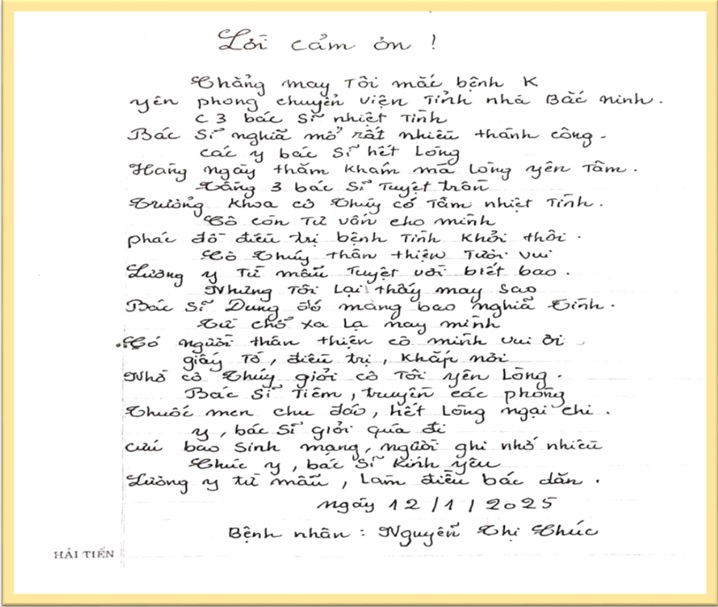 Lời cảm ơn !
Chẳng may Tôi mắc bệnh K
yên phong chuyển viện Tỉnh nhà Bắc ninh .
C 3 bác Sĩ nhiệt Tình
Bác Sĩ nghĩa mổ rất nhiều thành công .
các y bác Sĩ hết Lòng
Hàng ngày thăm khám mà Lòng yên Tâm .
Tầng 3 bác Sĩ Tuyệt trần
Trưởng khoa cô Thúy có Tâm nhiệt Tình .
Cô còn Tư vấn cho mình
phác đồ điều trị bệnh Tình khởi thôi .
Cô Thúy thân thiện Tươi vui
Lương y Từ mẫu Tuyệt vời biết bao .
Nhưng Tôi Lại thấy may Sao
Bác Sĩ Dung đó mang bao nghĩa Tình .
Từ chỗ xa Lạ nay mình
Có người thân thiện cô mình vui ơi
giấy Tờ , điều trị , khắp nơi
Nhờ cô Thúy giỏi cô Tôi yên Lòng .
Bác Sĩ Tiêm , truyền các phòng
Thuốc men chu đáo , hết Lòng ngại chi .
y , bác Sĩ giỏi qúa đi
cứu bao Sinh mạng , người ghi nhớ nhiều
Chúc y , bác Sĩ kính yêu
Lương y từ mẫu , Làm điều bác dăn .
ngày 12 / 1 / 2025
Bệnh nhân : Nguyễn Thị Chúc
HẢI TIẾN